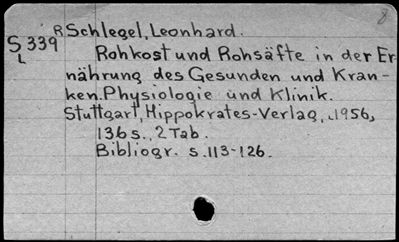 8
R Schlegel, Leonhard.
S 339
L
Rohkost und Rohsäfte in der Er-
nährung des Gesunden und Kran-
ken. Physiologie und Klinik.
Stuttgart, Hippokrates-Verlag, c1956,
136 s., 2 Tab.
Bibliogr. s. 113-126.